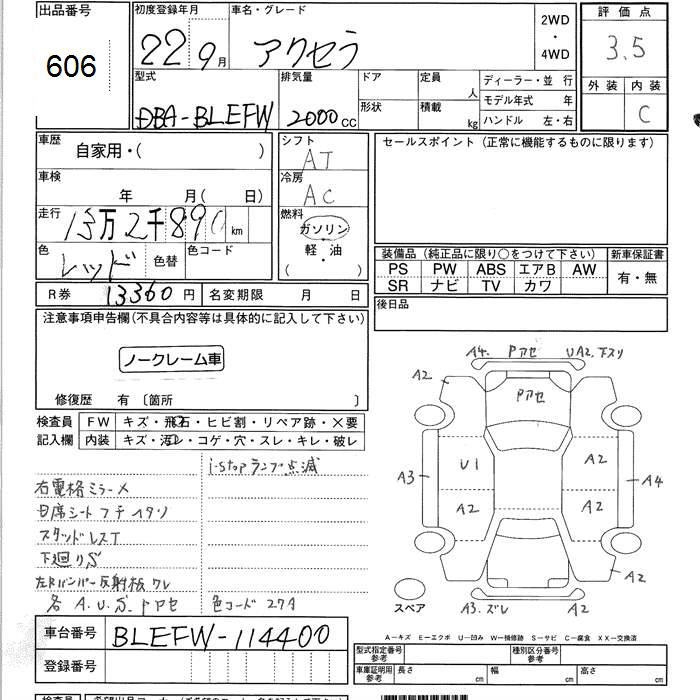 出品番号 初度登録年月 車名・グレード 2WD ・ 4WD 評価点
606 22 9月 アクセラ 3.5
型式 排気量 ドア 定員 人 ディーラー・並 行 外装 内装
DBA-BLEFW 2000cc 形状 積載 kg モデル年式 年 C
ハンドル 左・右
車歴 自家用・( ) シフト AT セールスポイント (正常に機能するものに限ります)
車検 年 月( 日) 冷房 AC
走行 13万2千890km 燃料 ガソリン
色 レッド 色替 色コード 軽・油 ( ・ ) 装備品 (純正品に限り○をつけて下さい) 新車保証書
PS PW ABS エアB AW 有・無
SR ナビ TV カワ
R券 13360円 名変期限 月 日 後日品
注意事項申告欄(不具合内容等は具体的に記入して下さい)
ノークレーム車
修復歴 有 〔箇所 〕
検査員 FW キズ・飛石・ヒビ割・リペア跡・×要
記入欄 内装 キズ・汚レ・コゲ・穴・スレ・キレ・破レ
i-stopランプ点滅
右電格ミラーメ
スタッドレスT
下廻りS
左Rバンパー反射板ワレ
各 A.U.S.Pアセ 色コード 27A
A4. Pアセ UA2.下スリ
A2 Pアセ
U1 A2
A3 A4
A2 A2
A2 A2
スペア A3.ズレ
A-キズ E-エクボ U-凹み W-補修跡 S-サビ C-腐食 XX-交換済
車台番号 BLEFW-114400
登録番号
型式指定番号 参考 種別区分番号 参考
車庫証明用 参考 長さ cm 幅 cm 高さ cm